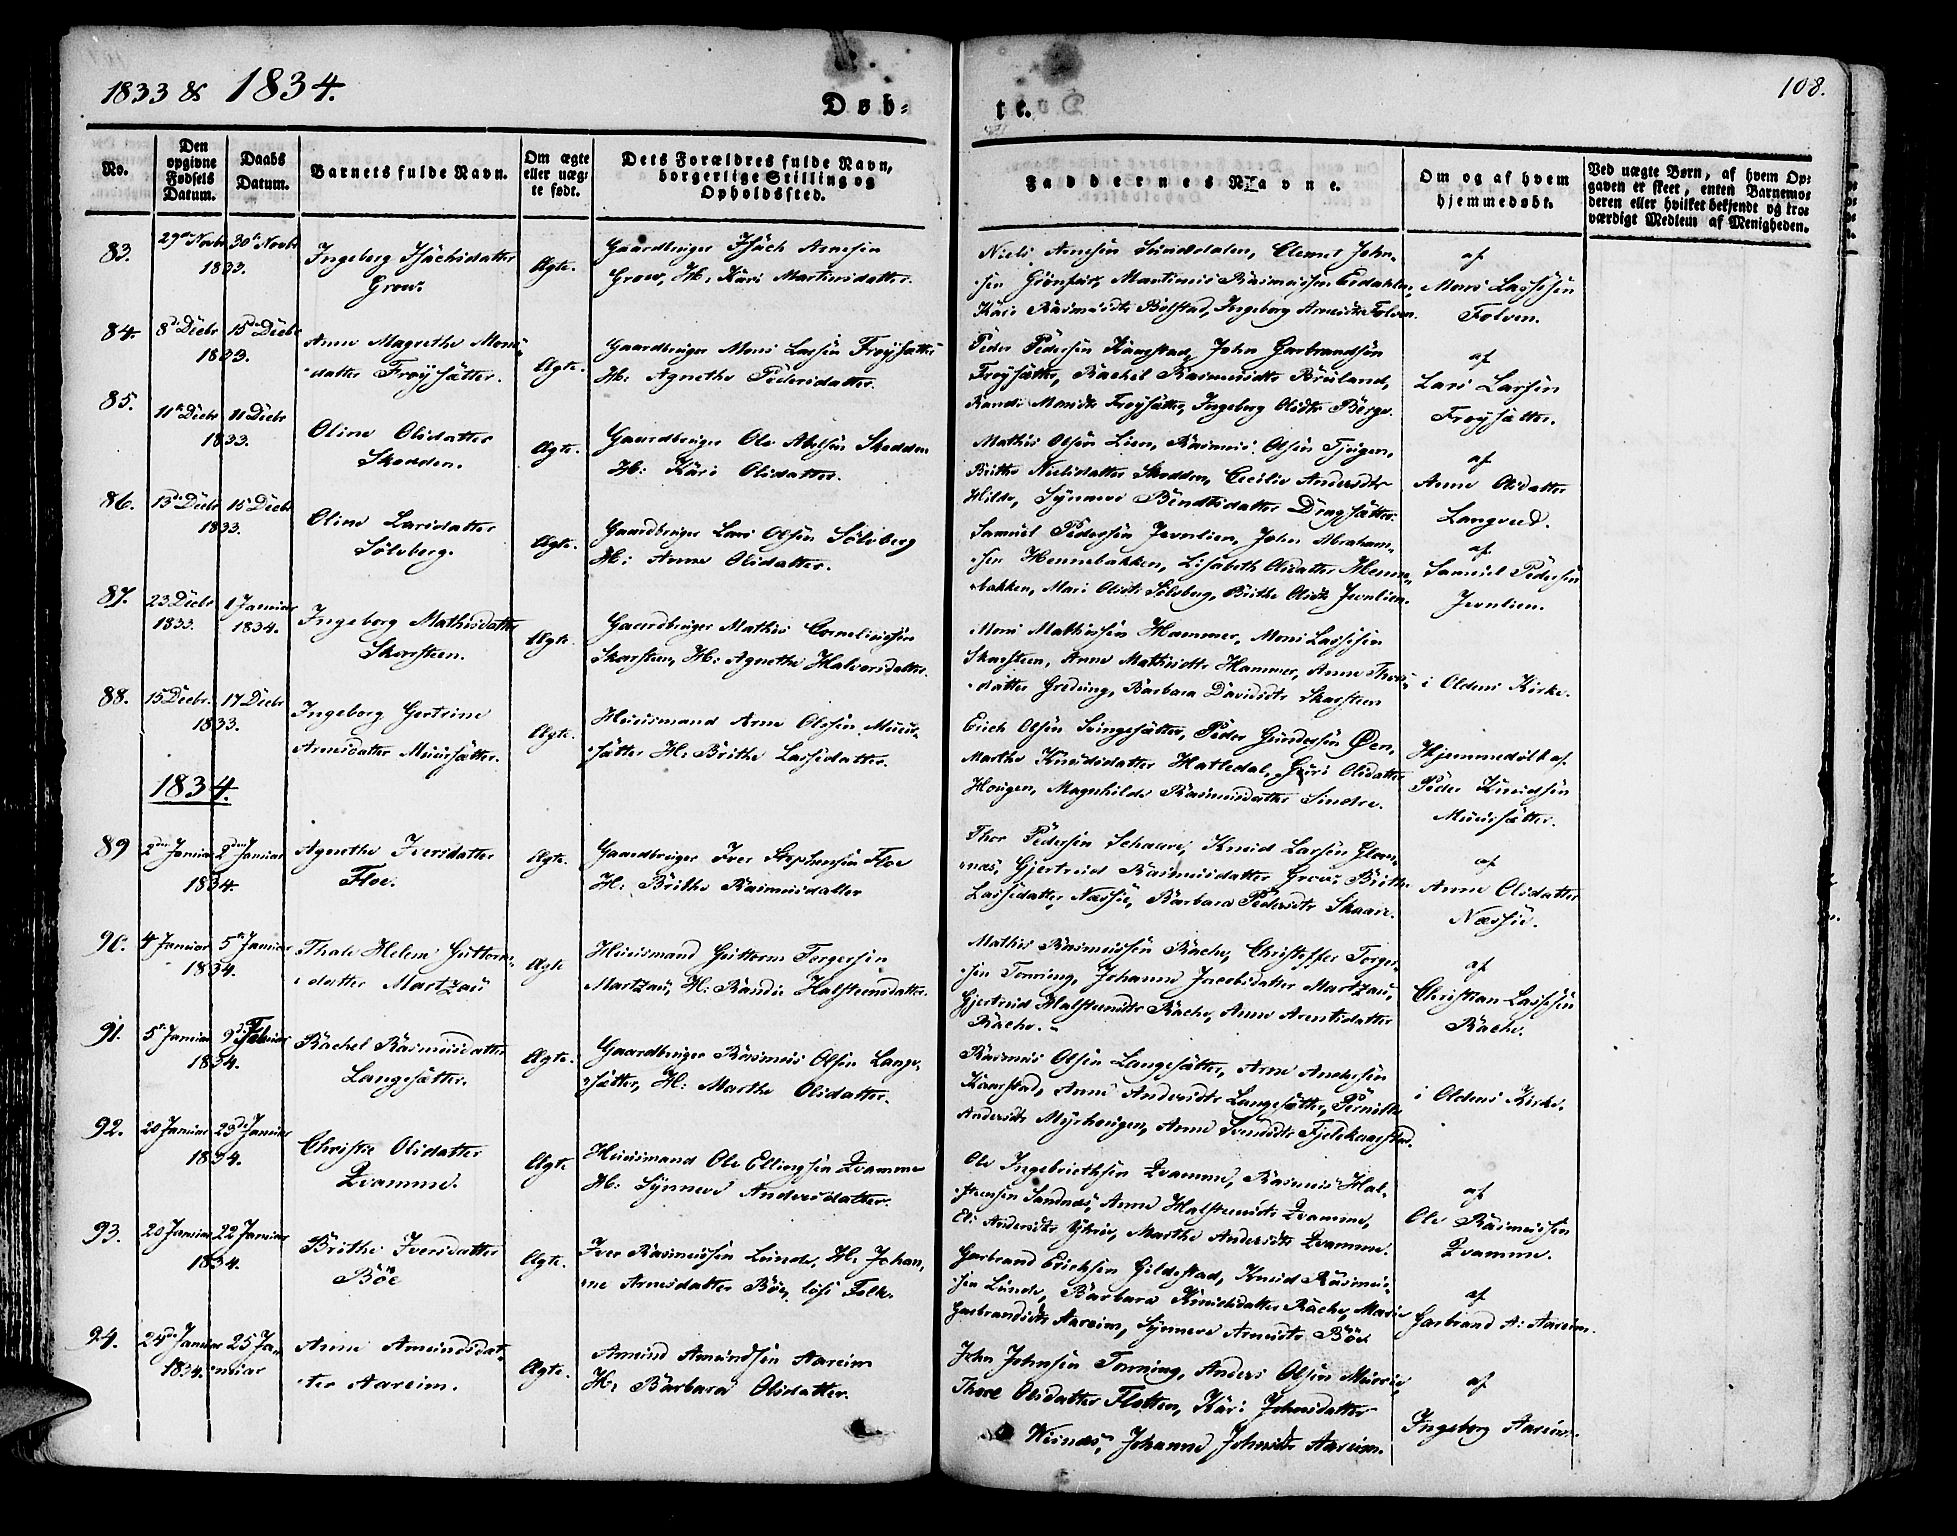 1833 & 1834.
Døb=
te.
108.
No.
Den opgivne Fødsels Datum.
Daabs Datum.
Barnets fulde Navn.
Om ægte eller uægte født.
Dets Forældres fulde Navn, borgerlige Stilling og Opholdssted.
Faddernes Navne.
Om og af hvem hjemmedøbt.
Ved uægte Børn, af hvem Op=
gaven er skeet, enten Barnemo=
deren eller hvilket bekjendt og tro=
værdigt Medlem af Menigheden.
83. 29de Novbr 30te Novbr
1833.
Ingeborg Isachsdatter
Grov.
Ægte.
Gaardbruger Isach Arnesen
Grov, H: Kari Martinsdatter.
Niels Arnesen Sunddalen, Clemet John=
sen Grønfur, Martinus Rasmussen Erdahlen,
Kari Rasmusdtr Bolstad, Ingeborg Arnesdtr Folven.
af
Mons Lassesen
Folven.
84. 8de Decbr 15de Decbr
1833.
Anne Magrethe Mons=
datter Frøysætter.
Ægte.
Gaardbruger Mons Larsen Frøysætter
H: Agnethe Pedersdatter.
Peder Pedersen Kaarstad, John Garbrandsen
Frøysætter, Rachel Rasmusdtr Bruland,
Randi Monsdtr Frøysætter, Ingeborg Olsdtr Berge.
af
Lars Larsen
Frøysætter.
85. 11te Decbr 11 Decbr
1833.
Oline Olsdatter
Skedden.
Ægte.
Gaardbruger Ole Abelsen Skedden
H: Kari Olsdatter.
Mathis Olsen Lien, Rasmus Olsen Tjugen,
Brithe Nielsdatter Skedden, Cecilie Andersdtr
Hilde, Synneve Bendtsdatter Dragsætter.
af
Anne Olsdatter
Langved.
86. 13de Decbr 15 Decbr
1833.
Oline Larsdatter
Sølvberg.
Ægte.
Gaardbruger Lars Olsen Sølvberg
H: Anne Olsdatter.
Samuel Pedersen Jevnlien, John Abraham=
sen Hennebakken, Lisabeth Olsdatter Henne=
bakken, Mari Olsdtr Sølvberg, Brithe Olsdtr Jevnlien.
af
Samuel Pedersen
Jevnlien.
87. 23 Decbr 1 Januar
1833. 1834.
Ingeborg Mathisdatter
Skarsteen.
Ægte.
Gaardbruger Mathis Corneliussen
Skarsteen, H: Agnethe Halvorsdatter.
Mons Mathissen Hammer, Mons Lassesen
Skarsteen, Anne Mathisdtr Hammer, Anne Thors=
datter Gredung, Barbara Davidsdtr Skarsteen
i Oldens Kirke.
88. 15 Decbr. 17 Decbr
1833.
Ingeborg Gertrine
Arnesdatter Muursætter.
Ægte.
Huusmand Arne Olssen Muur=
sætter H: Brithe Lassedatter.
Erich Olsen Svingesætter, Peder Gundersen Øen,
Marthe Knudsdatter Hatledal, Guri Olsdatter
Hougen, Magnhilde Rasmusdatter Sindre.
Hjemmedøbt af
Peder Knudsen
Muursætter.
1834.
89 2den Januar 2den Januar
1834.
Agnethe Iversdatter
Floe.
Ægte.
Gaardbruger Iver Stephensen Floe
H: Brithe Rasmusdatter
Thor Pedersen Schaare, Knud Larsen Glom=
næs, Gjertrud Rasmusdatter Grov, Brithe
Lassedatter Næssie, Barbara Pedersdtr Skaare.
af
Anne Olsdatter
Næssie.
90. 4 Januar 5te Januar
1834.
Thale Helene Guttorms=
datter Martzau
Ægte
Huusmand Guttorm Torgersen
Martzau, H: Randie Halsteensdatter.
Mathis Rasmussen Rache, Christoffer Torger=
sen Tonning, Johanne Jacobsdatter Martzau,
Gjertrud Halsteensdtr Rache, Anne Arentsdatter
Rache.
af
Christian Lassesen
Rache.
91. 5te Januar 9de Februar
1834.
Rachel Rasmusdatter
Langesætter.
Ægte.
Gaardbruger Rasmus Olsen Lange=
sætter, H: Marthe Olsdatter.
Rasmus Olsen Langesætter, Arne Andersen
Kaarstad, Anne Andersdtr Langesætter, Pernille
Andersdtr Myrhougen, Anne Svendsdtr Fjelskaarstad.
i Oldens Kirke.
92. 20 Januar 23de Januar
1834.
Christie Olsdatter
Qvamme.
Ægte
Huusmand Ole Ellingsen Qvamme
H: Synneve Andersdatter.
Ole Ingebrigtsen Qvamme, Rasmus Hal=
steensen Sandnæs, Anne Halsteensdtr Qvamme,
Eli Andersdtr Ytrie, Marthe Andersdtr Qvamme.
af
Ole Rasmussen
Qvamme.
93. 20 Januar 22 Januar
1834.
Brithe Iversdatter
Böe
Ægte.
Iver Rasmussen Lunde, H: Johan=
ne Arnesdatter Böe, løse Folk.
Garbrand Erichsen Gildestad, Knud Rasmus=
sen Lunde, Barbara Knudsdatter Rache, Marie
Garbrandsdtr Aareim, Synneve Arnesdtr Böe
af
Garbrand A: Aareim.
94. 24de Januar 25 Ja=
1834. nuar
Anne Amundsdat=
ter Aareim.
Ægte.
Amund Amundsen Aareim
H: Barbara Olsdatter.
John Johnsen Tonning, Anders Olsen Murrie,
Thore Olsdatter Flotten, Kari Johnsdatter
Wisnæs, Johanne Johnsdtr Aareim.
af
Ingeborg Aareim.